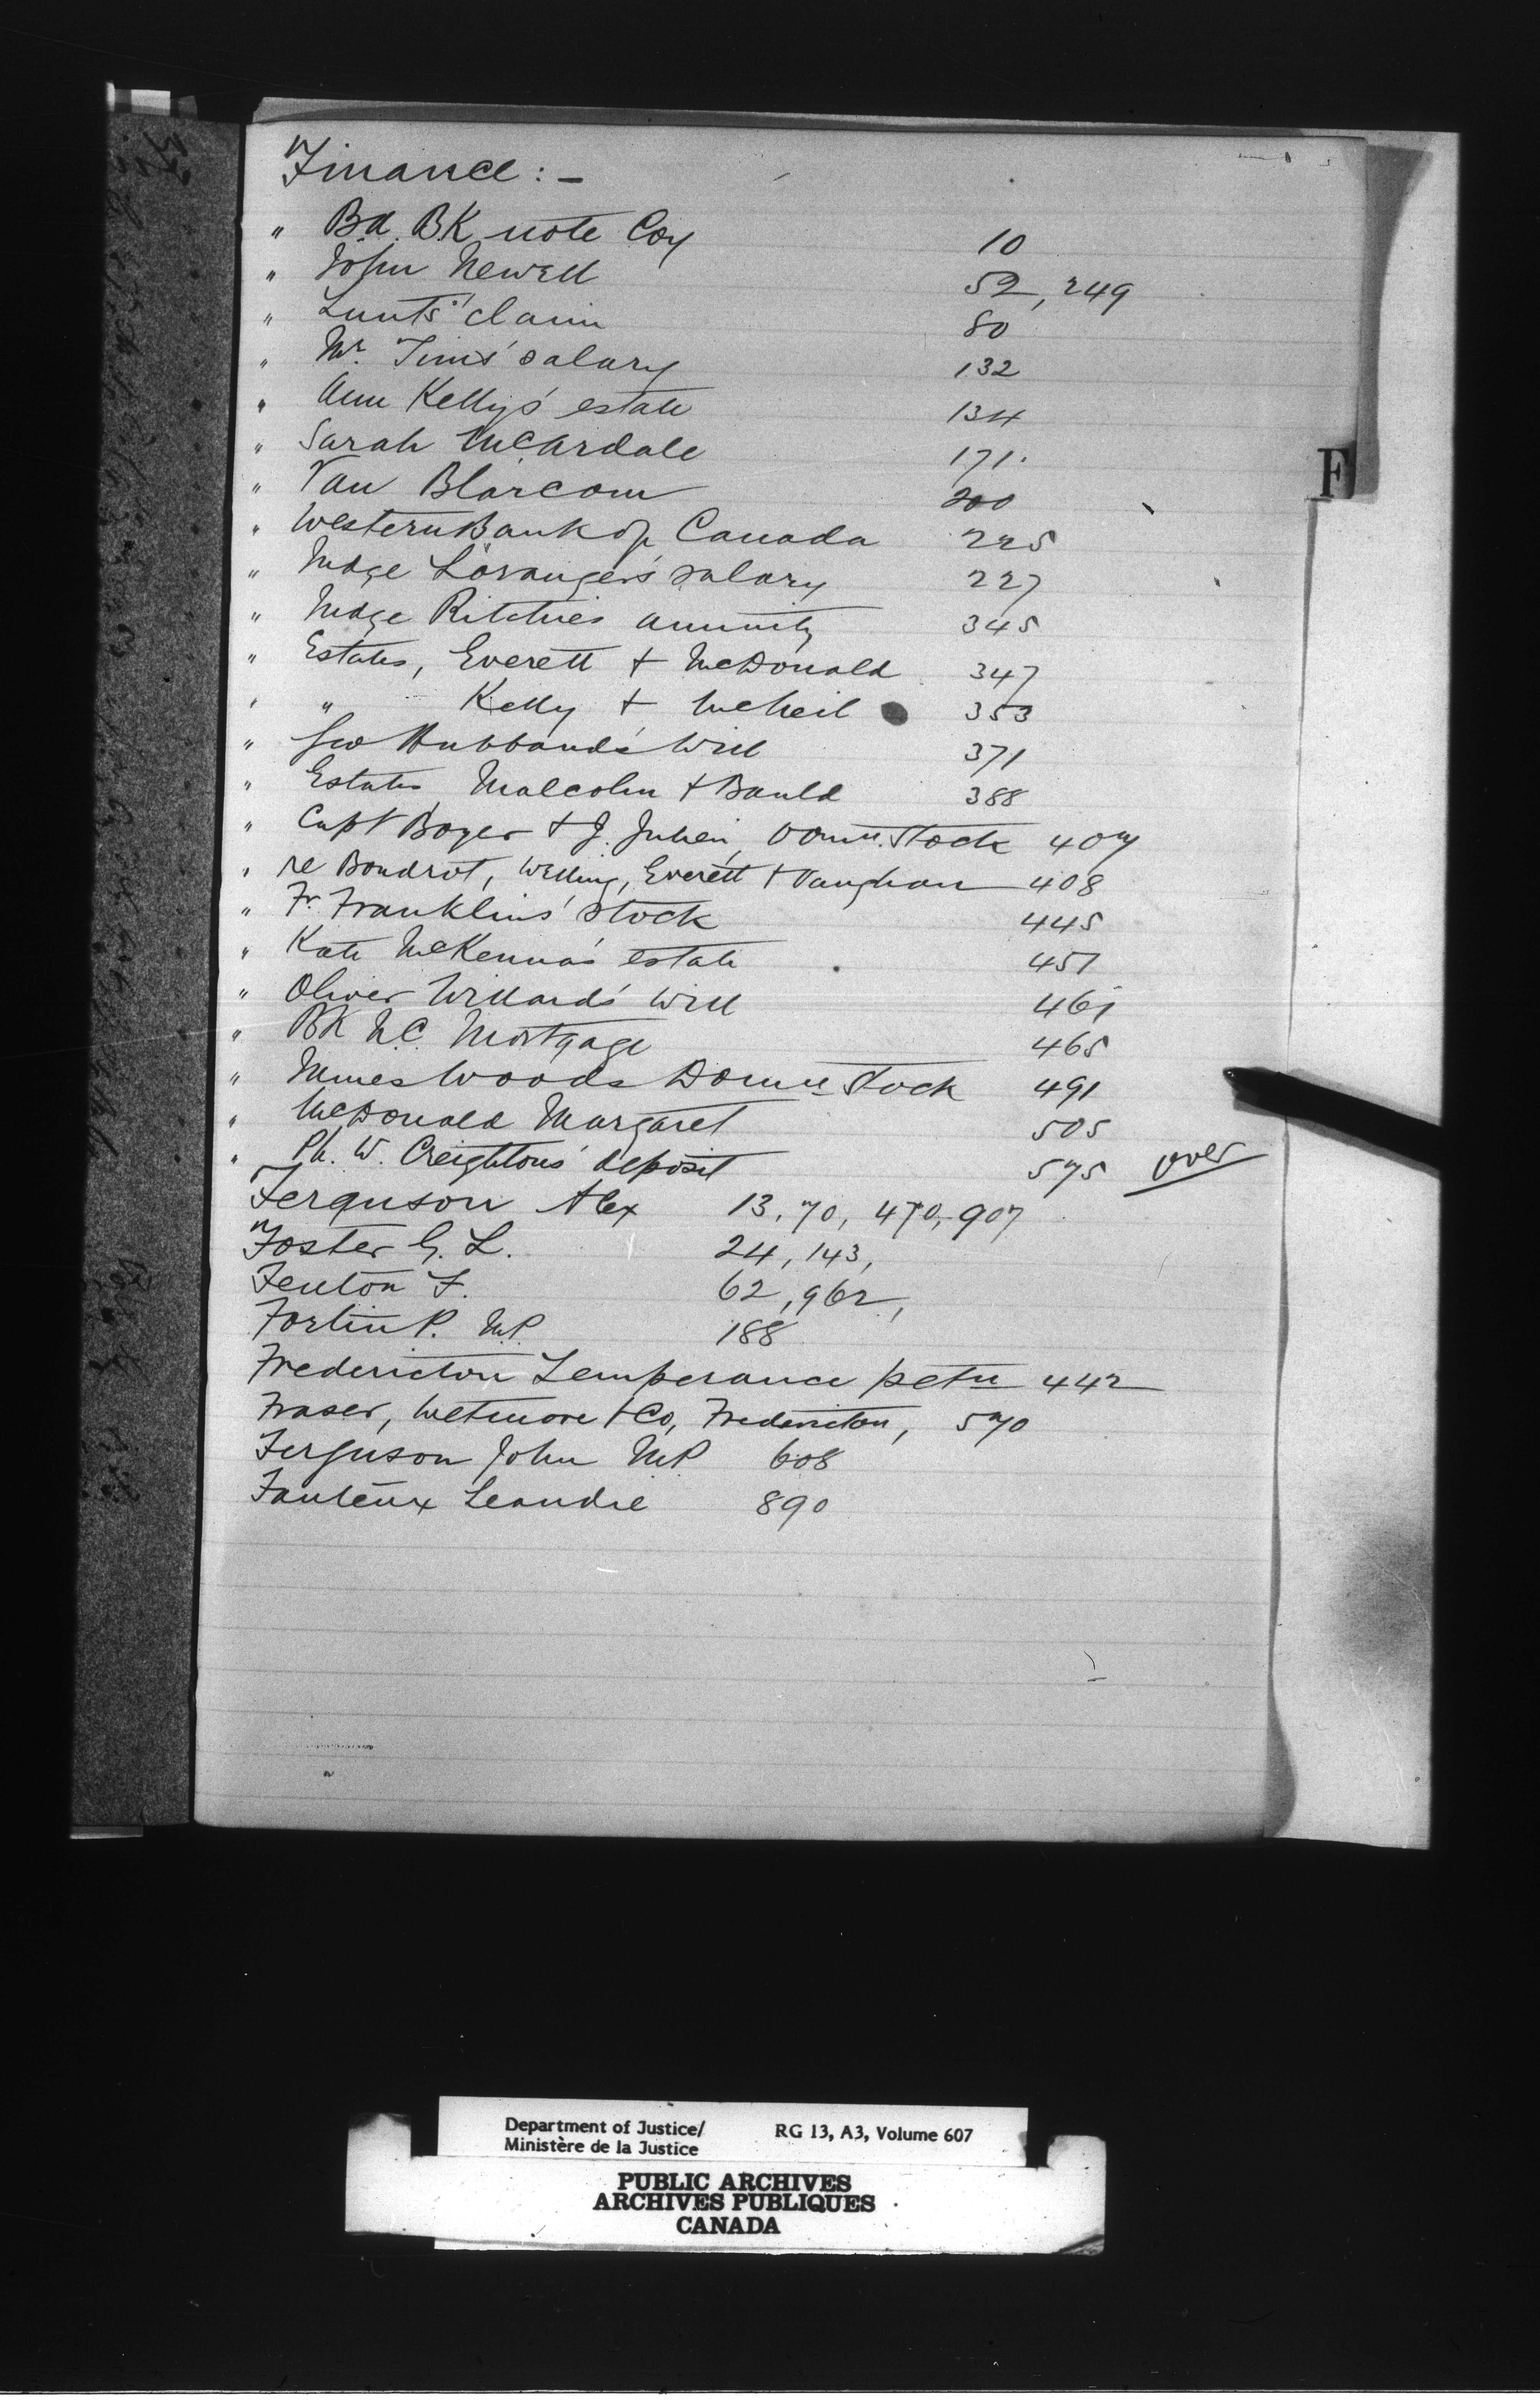 Finance : -
" B.A. BK note Coy 10
" John Newell 52, 249
" Lunt's claim 80
" Mr. Tims' salary 132
" Ann Kelly's estate 134
" Sarah McArdale 171
" Van Blarcom 200
" Western Bank of Canada 225
" Judge Loranger's salary 227
" Judge Ritchie's annuity 345
" Estates, Everett + McDonald 347
" " Kelly + McNeil 353
" Geo Hubband's Will 371
" Estates Malcolm + Bauld 388
" Capt Boyer + J. Julien, Domn. Stock 407
" re Boudrot, Welling, Everett + Vaughan 408
" Fr. Franklins' Stock 445
" Kate McKenna's estate 451
" Oliver Willard's Will 461
" BK N.C. Mortgage 465
" Woods Domn Stock 491
" McDonald Margaret 505
" Ph. W. Creightons' deposit 575 over
Ferguson Alex 13, 70, 470, 907
Foster G. L. 24, 143,
Fenton F. 62, 962,
Fortin P. MP 188
Fredericton Temperance petn 442
Fraser, Wetmore + Co, Fredericton, 570
Ferguson John MP 608
Fauteux Leandre 890
F
Department of Justice/ RG 13, A3, Volume 607
Ministère de la Justice
PUBLIC ARCHIVES
ARCHIVES PUBLIQUES
CANADA